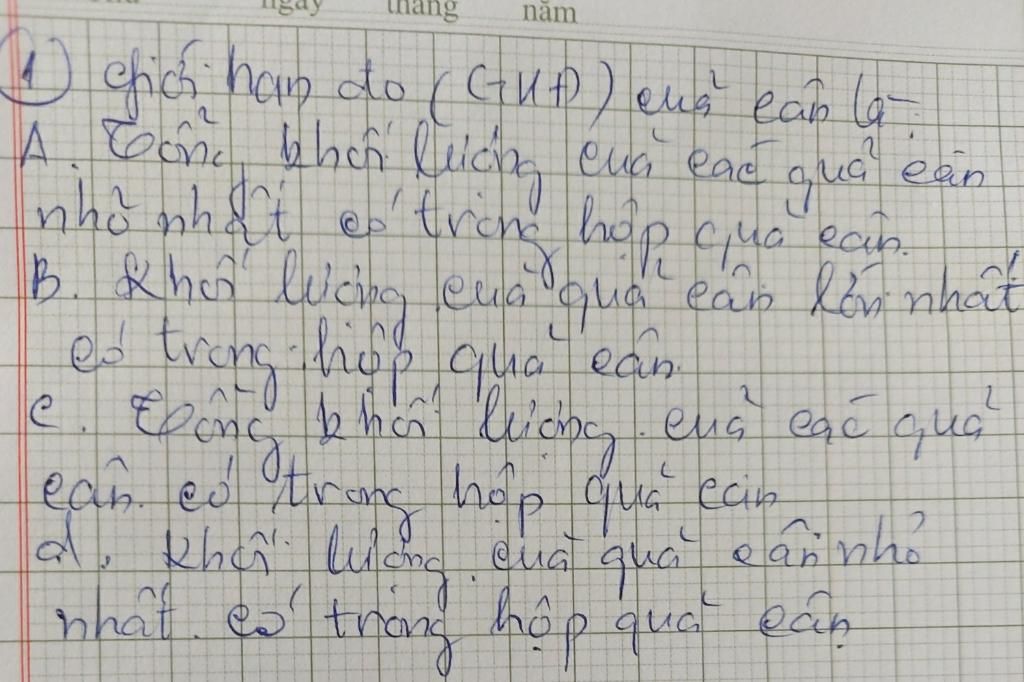 ngày tháng năm
① Giới hạn đo (GHĐ) của cân là:
A. Tổng khối lượng của các quả cân
nhỏ nhất có trong hộp quả cân.
B. Khối lượng của quả cân lớn nhất
có trong hộp quả cân.
c. Tổng khối lượng của các quả
cân có trong hộp quả cân
d. Khối lượng của quả cân nhỏ
nhất có trong hộp quả cân